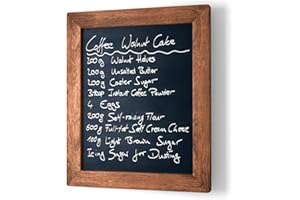 Coffee Walnut Cake
200g Walnut Halves
200g Unsalted Butter
200g Caster Sugar
3tbsp Instant Coffee Powder
4 Eggs
200g Self-raising Flour
600g Full-fat Soft Cream Cheese
100g Light Brown Sugar
Icing Sugar for Dusting